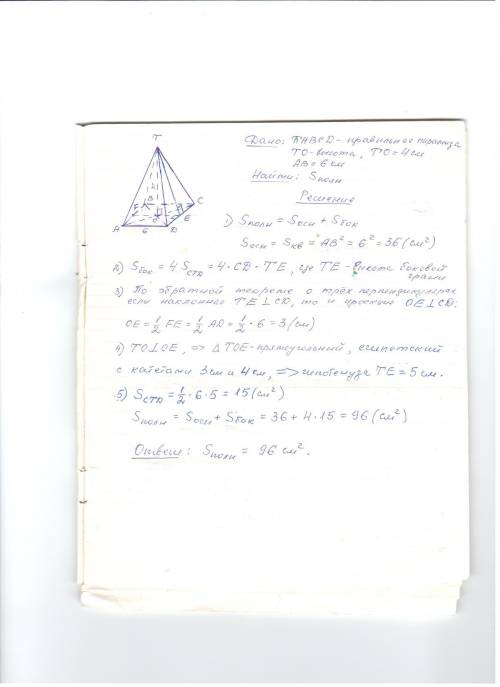 T
Дано: TABCD - правильная пирамида
TO - высота, TO = 4 см
AB = 6 см
Найти: Sполн
B
C
F
O
E
A
6
D
Решение
1) Sполн = Sосн + Sбок
Sосн = Sкв = AB² = 6² = 36 (см²)
2) Sбок = 4 SCTD = 4 · CD · TE, где TE - высота боковой
грани
3) По обратной теореме о трёх перпендикулярах
если наклонная TE ⊥ CD, то и проекция OE ⊥ CD.
OE = 1/2 FE = 1/2 AD = 1/2 · 6 = 3 (см)
4) TO ⊥ OE, => △ TOE - прямоугольный, египетский
с катетами 3 см и 4 см, => гипотенуза TE = 5 см.
5) SCTD = 1/2 · 6 · 5 = 15 (см²)
Sполн = Sосн + Sбок = 36 + 4 · 15 = 96 (см²)
Ответ: Sполн = 96 см².